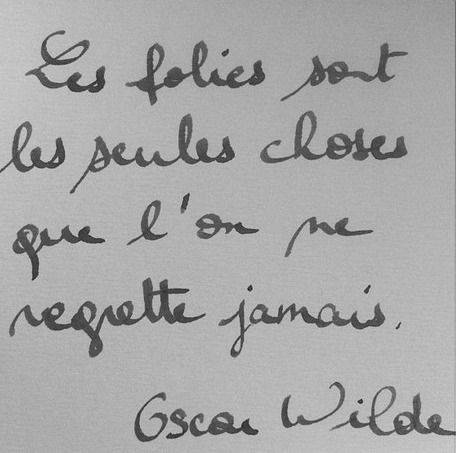 Les folies sont
les seules choses
que l'on ne
regrette jamais.
Oscar Wilde